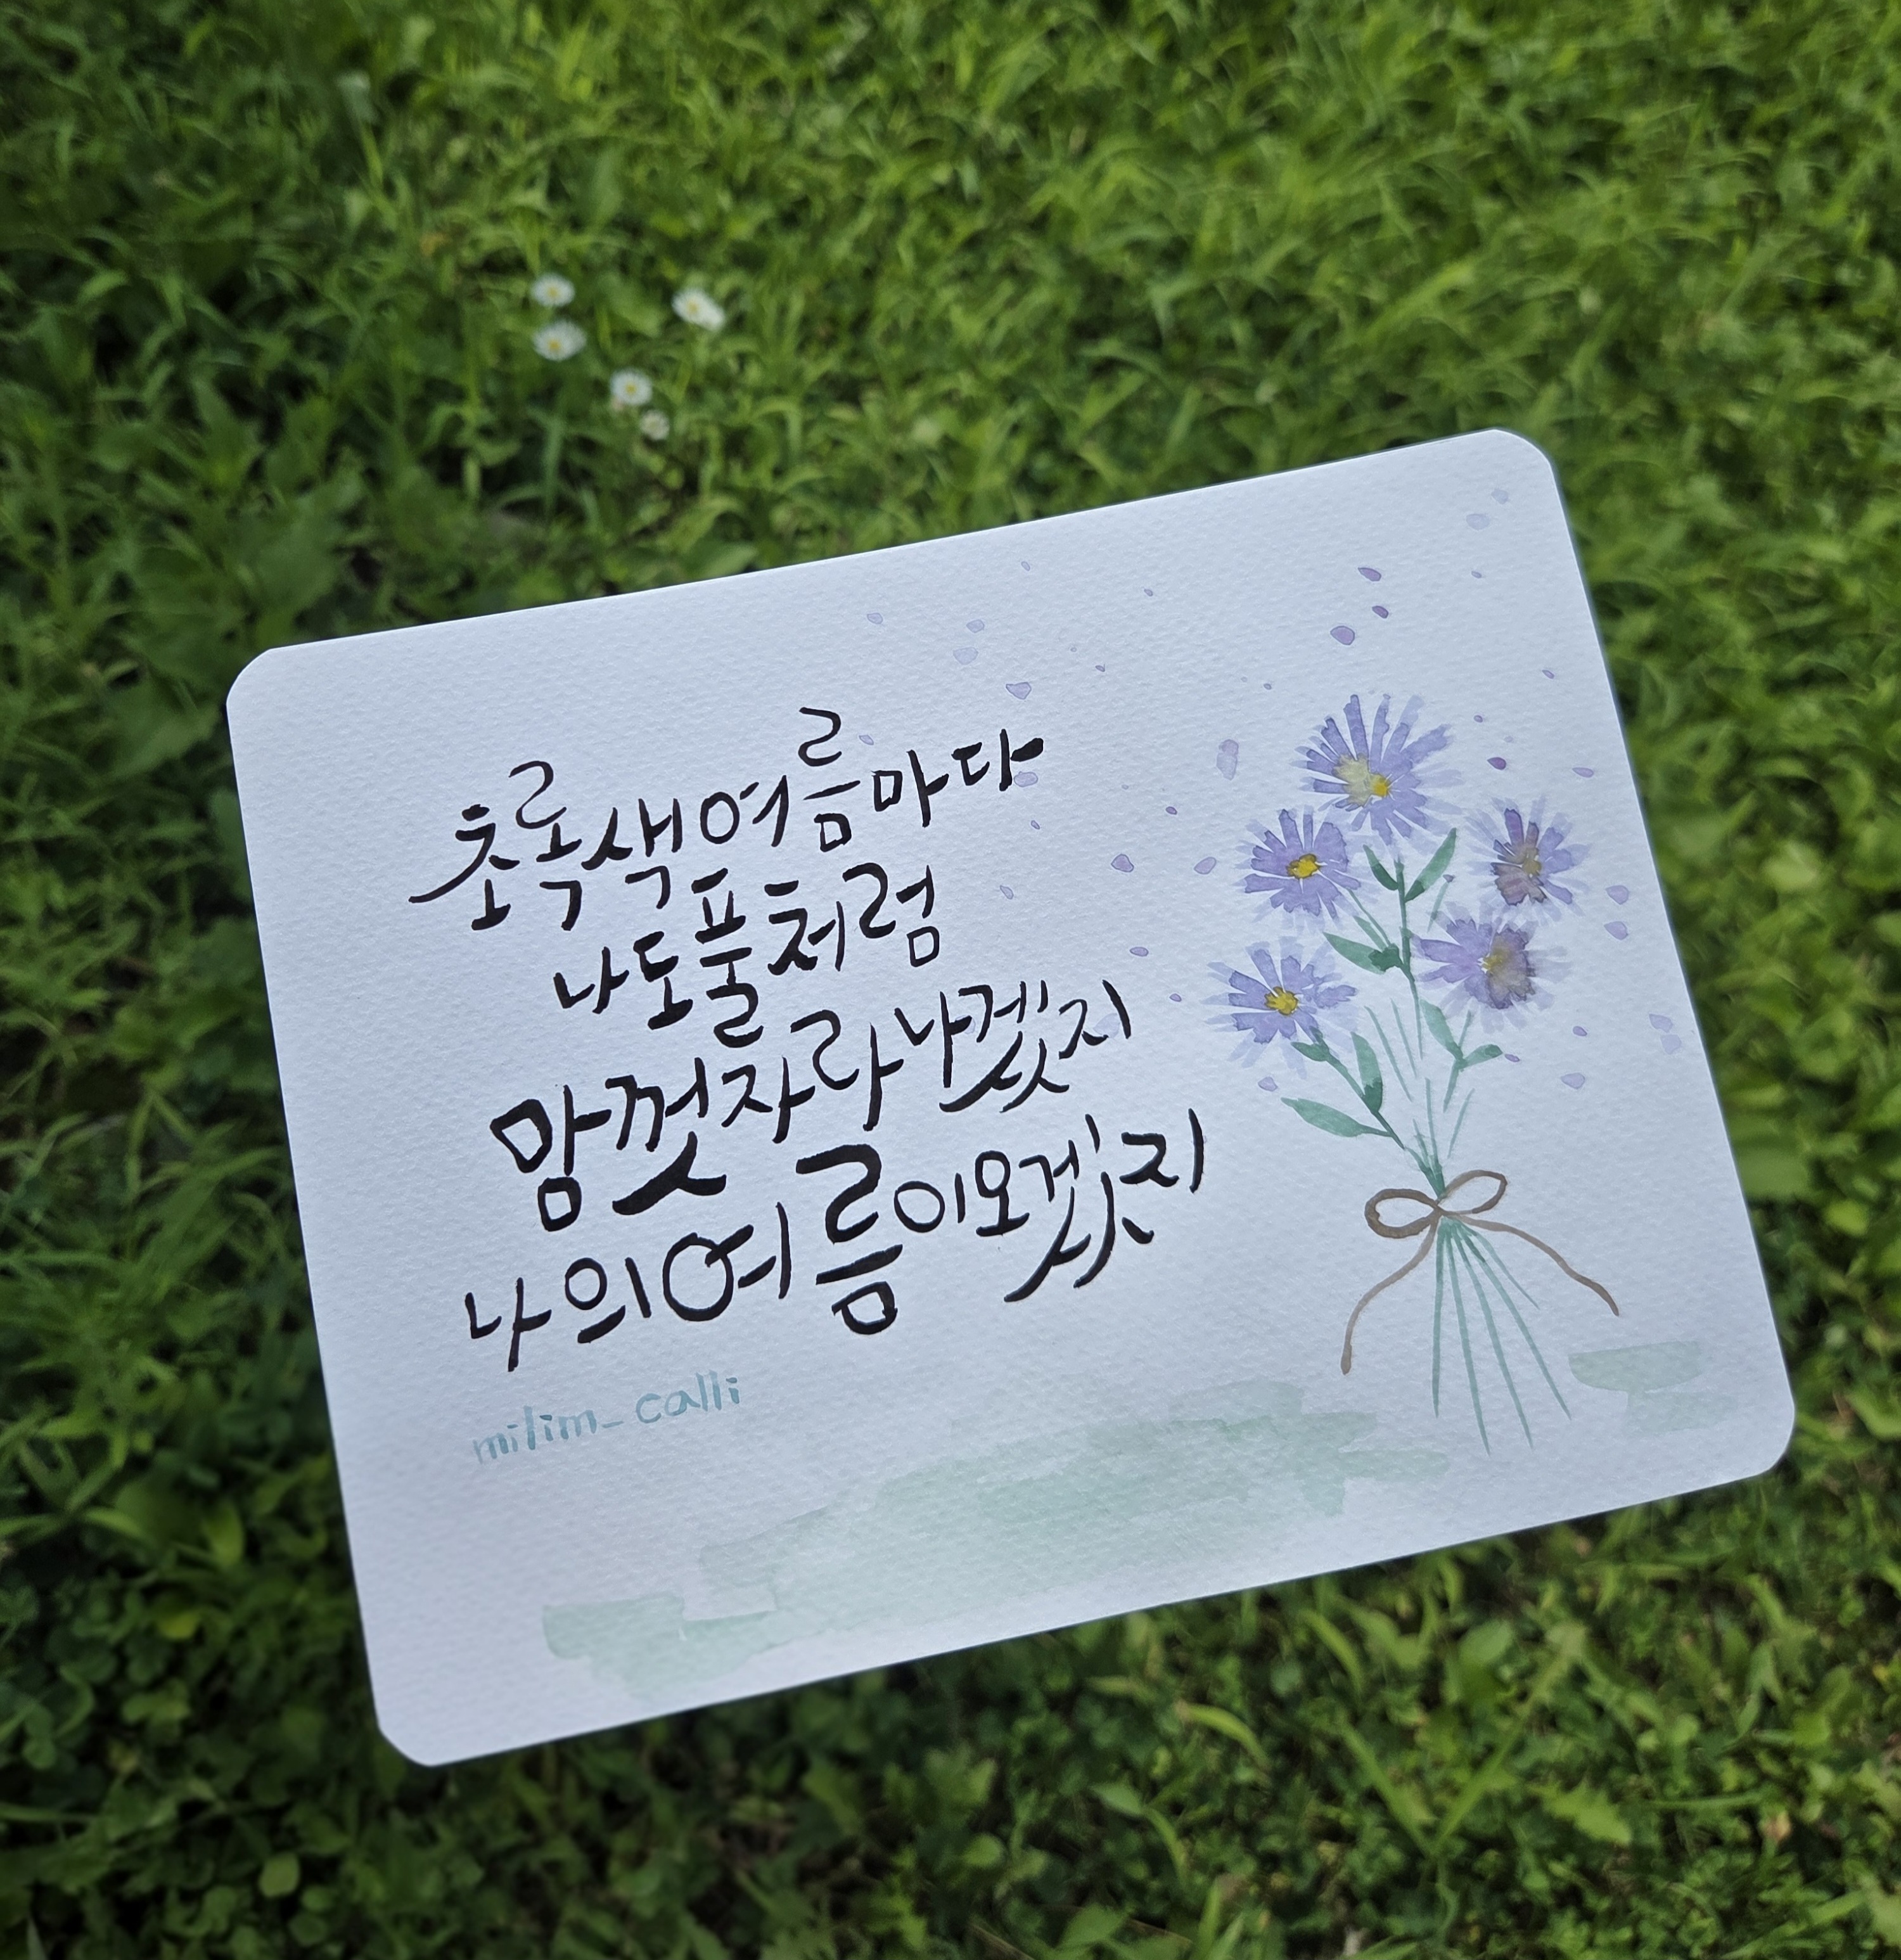 초록색 여름마다
나도 풀처럼
맘껏 자라나겠지
나의 여름이 오겠지
milim_calli